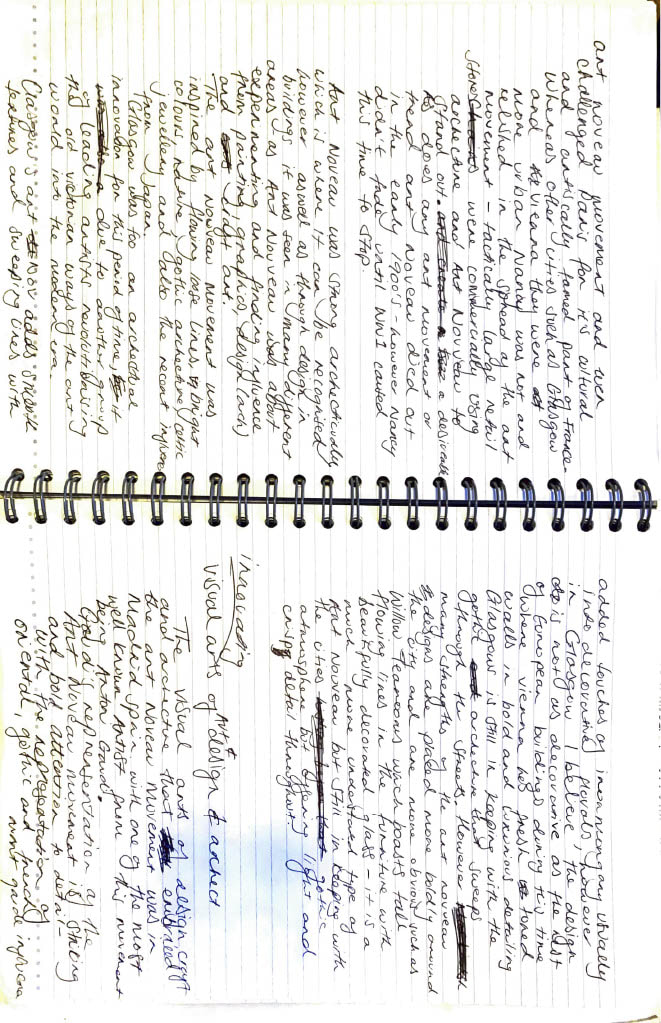 art noveau movement and even
challenged Paris for it's cultural
and artistically famed part of France.
Whereas other cities such as Glasgow
and Vienna they were
more urban Nancy was not and
relished in the spread of the art
movement - tactically large retail
stores were commercially using
architecture and Art Nouveau to
stand out. a desirable
As does any art movement or
trend Art Nouveau died out
in the early 1900's - however Nancy
didn't fade until WW1 caused
this time to stop.
Art Noveau was strong archectically
which is where it can be recognised
however aswell as through design in
buildings it was seen in many different
areas as Art Nouveau was about
experimenting and finding influence
them painting, graphics, design (cards)
and light art.
The art Noveau movement was
inspired by flowing base lines, bright
colours nature, gothic archecture, celtic
jewellery and also the recent
from Japan.
Glasgow was too an archectical
innovation for this period of time, it
due to another group
of leading artists revolutionising
the old victorian ways of the art
world into the modern era
Glasgow's art Nov. adds
features and sweeping lines with
added touches of usually
decorating florals, however
in Glasgow I believe the design
is not as decorative as the rest
of European buildings during this time
where vienna has fresh toned
walls in bold and luxurious detailing
Glasgow is still in keeping with the
gothic archecture that sweeps
through the streets. However
many strengths of the art noveau
designs are placed more boldly around
the city and are more obvious such as
Willow Tearooms which boasts tall
flowing lines in the furniture with
beautifully decorated glass - it is a
much more understated type of
Art Nouveau but still in keeping with
the cities gothic
atmosphere but offering light and
crisp detail throughout.
innovating
visual arts of Art & design & arched
The visual arts of design crept
and archecture that embodied
the art Noveau movement was in
Madrid Spain with one of the most
well known Artist from this movement
being Anton Gaudi.
Gaudi's representation of the
Art Noveau movement is striking
and bold attention to detail -
with the representation of
oriental, gothic and french